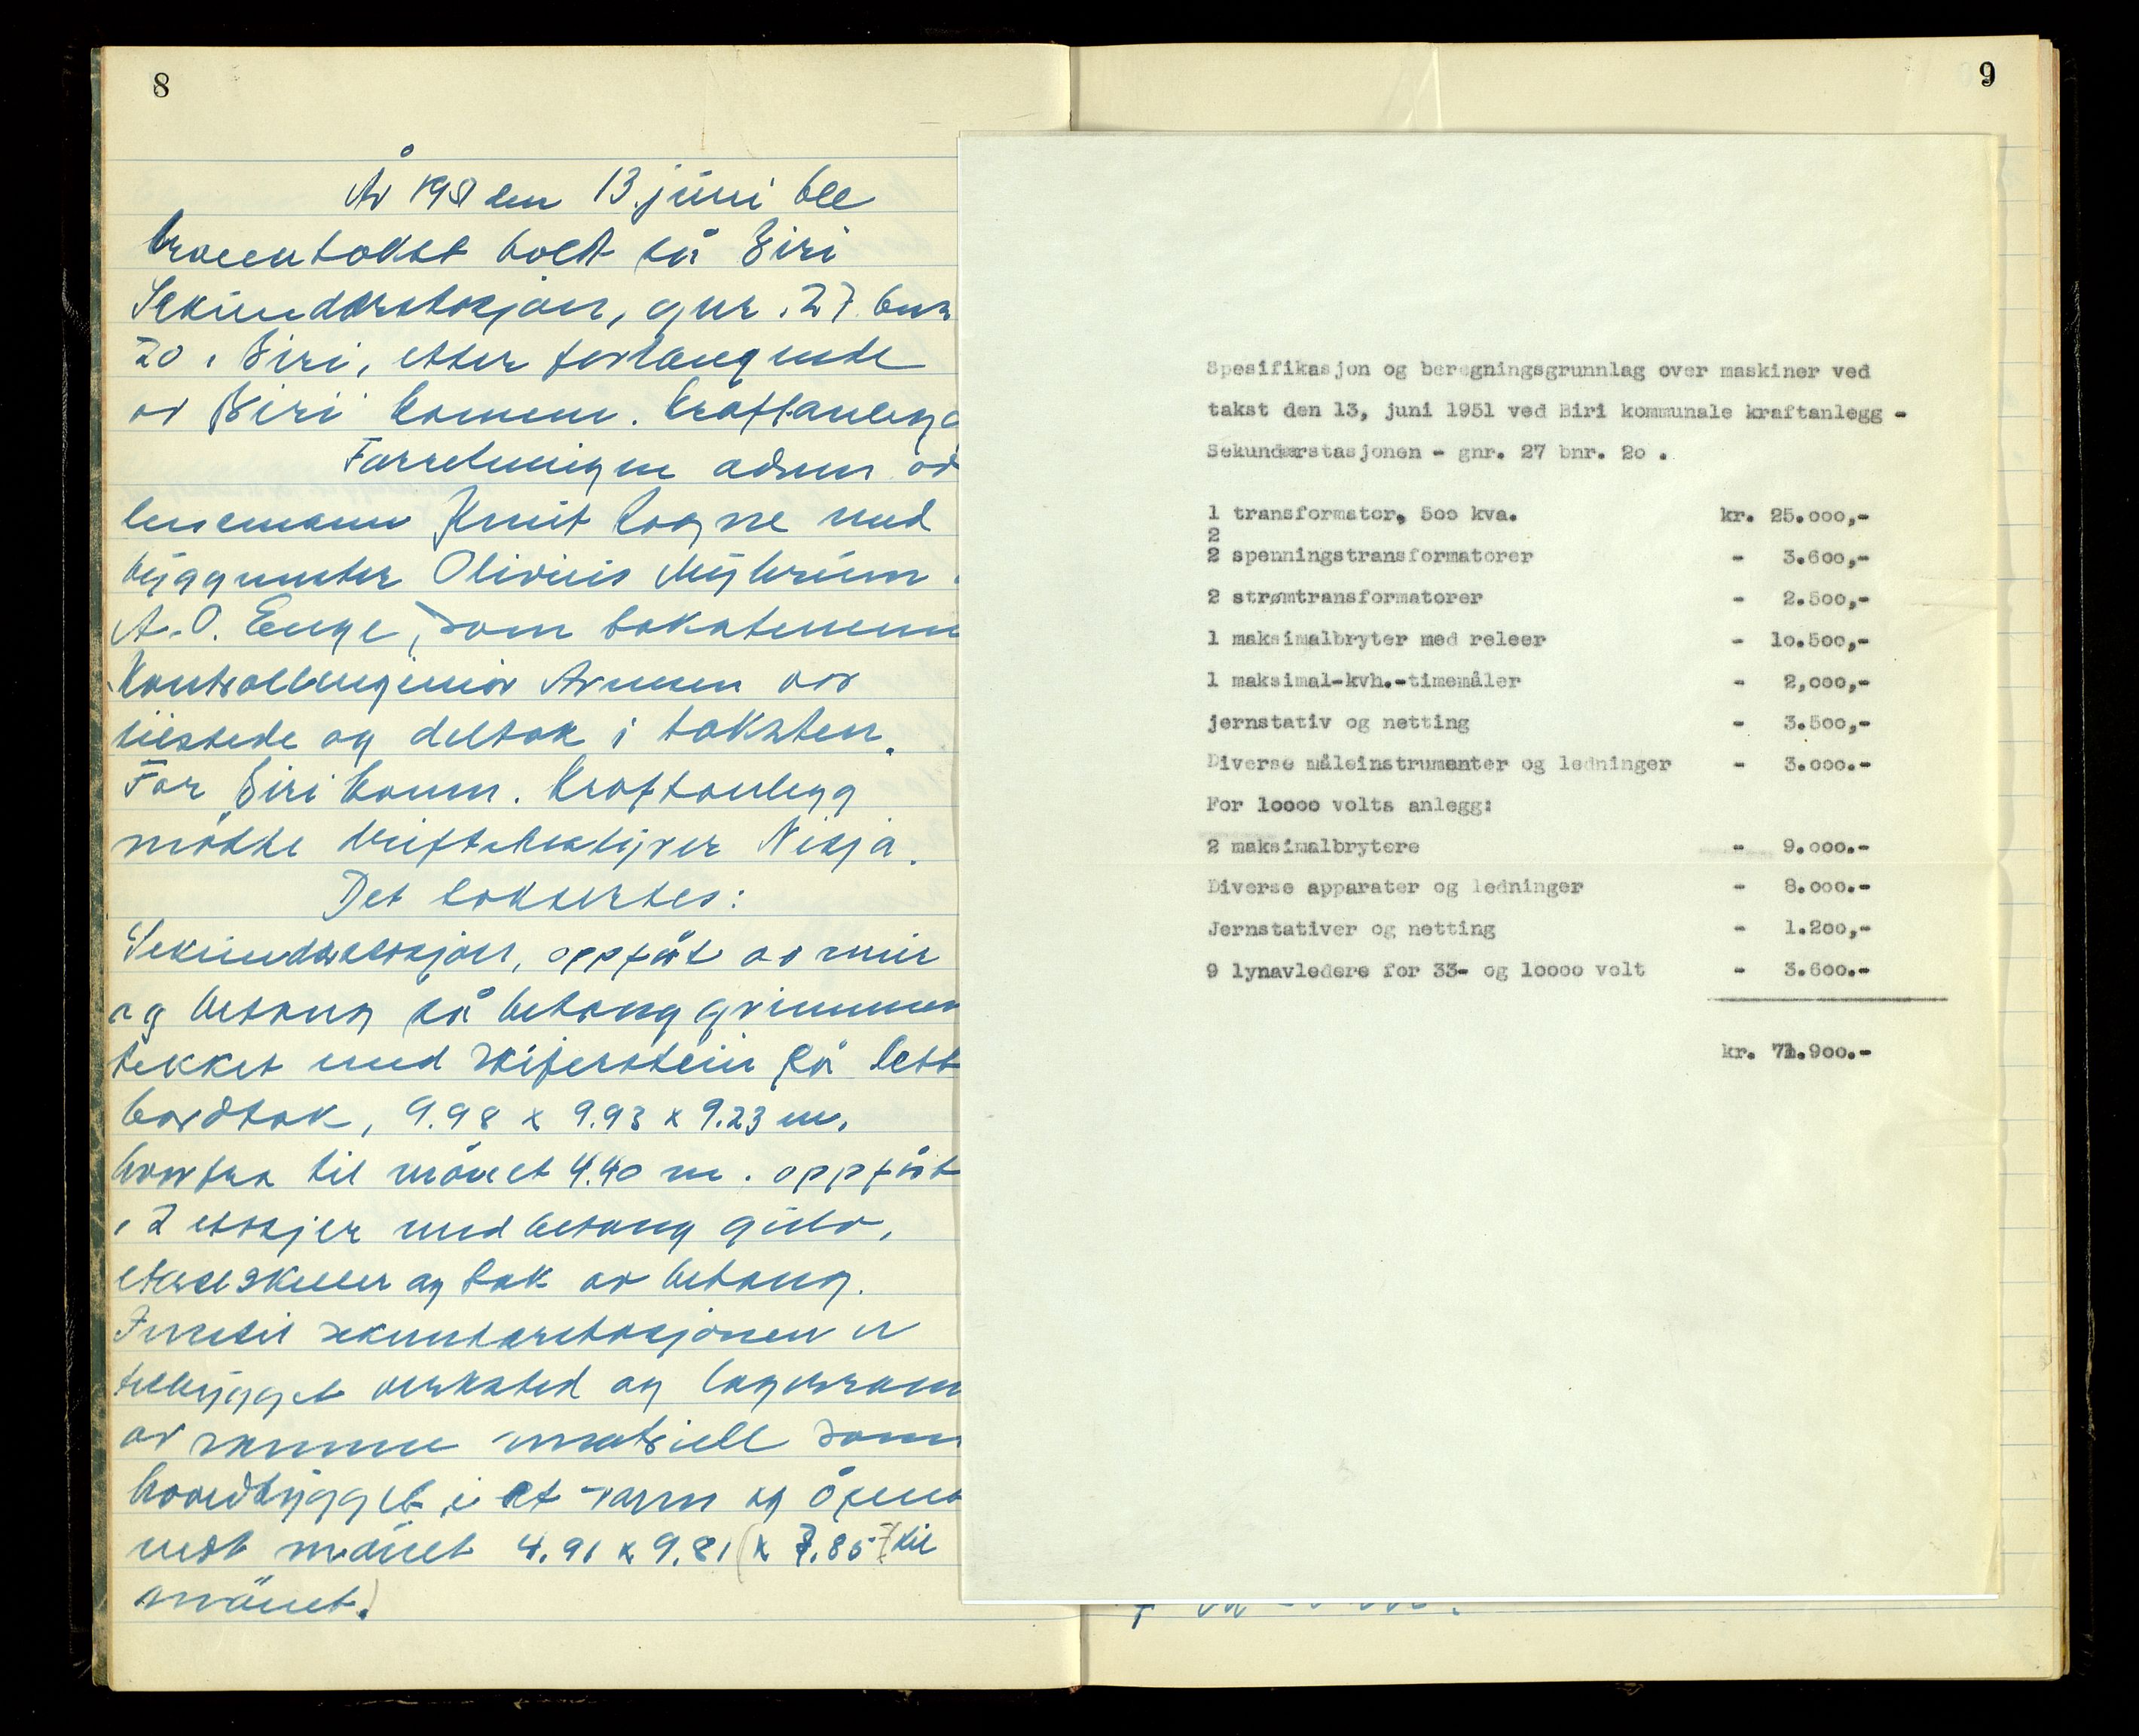 8
År 1951 den 13. juni ble
branntakst holdt på Biri
Sekundærstasjon, gnr. 27 bnr
20 i Biri, etter forlangende
av Biri komm. kraftanlegg
Forretningen adm. av
lensmann Knut Rogne med
byggmester Olivius Myhrum
A. O. Enge, som takstmenn
Kontrollingeniør var
tilstede og deltok i taksten.
For Biri komm. kraftanlegg
møtte driftsbestyrer Nisja.
Det taksertes:
Sekundærstasjon, oppført av mur
og betong på betonggrunnmur
tekket med skiferstein på tett
bordtak, 9.98 x 9.93 x 9.23 m.
herfra til mønet 4.40 m. oppført
i 2 etasjer med betong gulv,
etasjeskiller og tak av betong.
Inntil sekundærstasjonen er
tilbygget verksted og lagerrom
av samme matriell som
hovedbygget i et rom og åpent
mot mønet 4.91 x 9.81 (x 7.85 til
mønet.)
9
Spesifikasjon og beregningsgrunnlag over maskiner ved
takst den 13, juni 1951 ved Biri kommunale kraftanlegg -
Sekundærstasjonen - gnr. 27 bnr. 2o .
1 transformator, 5oo kva. kr. 25.ooo,-
2
2 spenningstransformatorer - 3.6oo,-
2 strømtransformatorer - 2.5oo,-
1 maksimalbryter med releer - 1o.5oo,-
1 maksimal-kvh.-timemåler - 2,ooo,-
jernstativ og netting - 3.5oo,-
Diverse måleinstrumenter og ledninger - 3.ooo.-
For 1oooo volts anlegg:
2 maksimalbrytere - 9.ooo.-
Diverse apparater og ledninger - 8.ooo.-
Jernstativer og netting - 1.2oo,-
9 lynavledere for 33- og 1oooo volt - 3.6oo.-
kr. 71.9oo.-